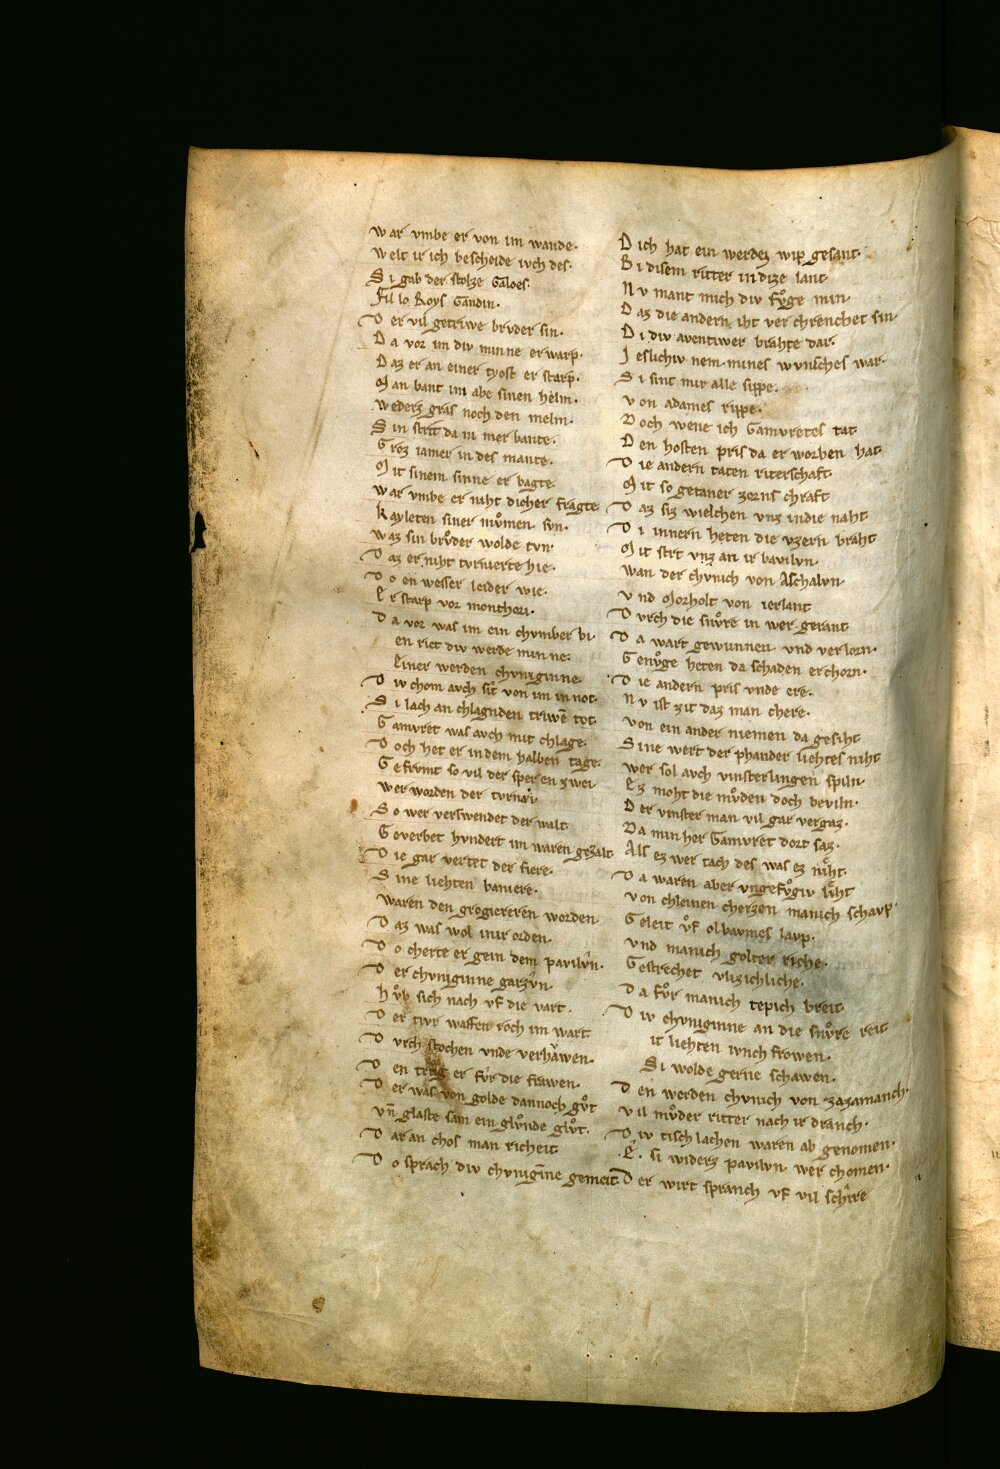 War vmbe er von im wande.
Welt ir ich bescheide ivch des.
Si gab der stolze Galoes.
Fil lo Roys Gandin.
Der vil getriwe brvder sin.
Da vor im div minne erwarp.
Daz er an einer tyost er starp.
Man bant im abe sinen helm.
Weders gras noch den melm.
Sin strit da in mer bante.
Groz iamer in des mante.
Mit sinem sinne er bagte.
War vmbe er niht dicher fragte
Kayleten siner mvͦmen svn.
Waz sin brvͦder wolde tvn
Daz er niht tvrnierte hie.
Do en wesser leider wie.
Er starp vor monthori.
Da vor was im ein chvmber bi
en riet div werde minne.
Einer werden chvniginne.
Div chom avch sit von im in not.
Si lach an chlagnden triwē tot.
Gamvret was avch mit chlage.
Doch het er in dem halben tage.
Gefrvmt so vil der sper en zwei
wer worden der tvrnai
So wer verswendet der walt.
Geverbet hvndert im waren gezalt.
Die gar vertet der fiere.
Sine liehten baniere.
Waren den grogiereren worden
Daz was wol in ir orden.
Do cherte er gein dem pavilvn.
Der chvniginne garzvn.
Hvͦb sich nach vf die vart.
Der tivr waffen roch im wart
Dvrch stochen vnde verhawen.
Den trvͦg er fvr die frawen.
Der was von golde dannoch gvͦt
vn̄ glaste sam ein glvͦnde glvͦt.
Dar an chos man richeit.
Do sprach div chvnigīne gemeit.
Dich hat ein werdez wip gesant.
Bi disem ritter in dize lant
Nv mant mich div fvͦge min
Daz die andern iht ver chrenchet sin
Di div aventiwer brahte dar.
Ieslichiv nem mines wunsches war.
Si sint mir alle sippe.
von adames rippe.
Doch wene ich Gamvretes tat
Den hosten pris da er worben hat
Die andern taten riterschaft
Mit so getaner zorns chraft
Daz siz wielchen vnz in die naht
Di innern heten die vzern braht
Mit strit vnz an ir pavilvn
wan der chvnich von Aschalvn
vnd Morholt von ierlant
Dvrch die snvͦre in wer gerant
Da wart gewunnen vnd verlorn.
Genvͦge heten da schaden erchorn.
Die andern pris vnde ere.
Nv ist zit daz man chere.
von ein ander niemen da gesiht
Sine wert der phander liehtes niht
wer sol avch vinsterlingen spiln
Ez moht die mvͦden doch beviln.
Der vinster man vil gar vergaz.
Da min her Gamvret dort saz.
Als ez wer tach des was ez niht.
Da waren aber vngefvͦgiv lieht
von chleinen cherzen manich scharp
Geleit vͦf olbavmes lavp.
vnd manich golter riche.
Gestrechet vlizichliche.
Da fvͦr manich tepich breit
Div chvniginne an die snvͦre reit
it liehten ivnch frowen.
Si wolde gerne schawen.
Den werden chvnich von zazamanch.
Vil mvͦder ritter nach ir dranch.
Div tischlachen waren ab genomen.
.E. si widerz pavilvn wer chomen.
Der wirt spranch vf vil schire